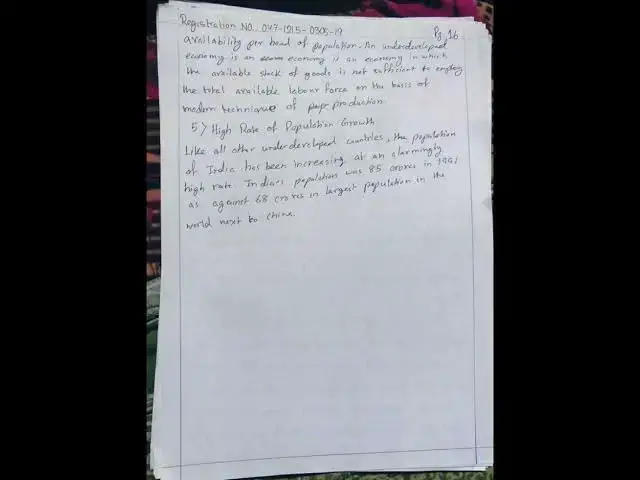 Registration NO. 047-1215-0305-19
Pg. 16
availability per head of population. An underdeveloped
economy is an economy is an economy in which
the available stock of goods is not sufficient to employ
the total available labour force on the basis of
modern technique of production.
5) High Rate of Population Growth
Like all other underdeveloped countries, the population
of India has been increasing at an alarmingly
high rate. India's population was 85 crores in 1991
as against 68 crores in largest population in the
world next to china.